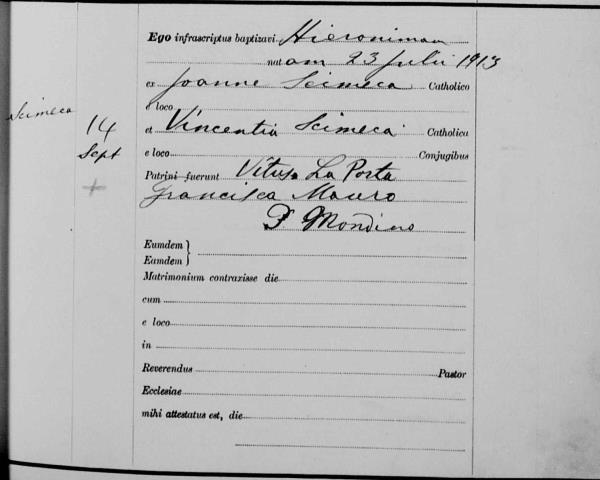 Ego infrascriptus baptizavi Hieronimam
natam 23 Julii 1913
ex Joanne Scimeca Catholico
e loco
Scimeca
14 et Vincentia Scimeca Catholica
Sept e loco Conjugibus
Patrini fuerunt Vitus La Porta
Francisca Mauro
P. Mondino
Eumdem }
Eamdem }
Matrimonium contraxisse die
cum
e loco
in
Reverendus Pastor
Ecclesiae
mihi attestatus est, die